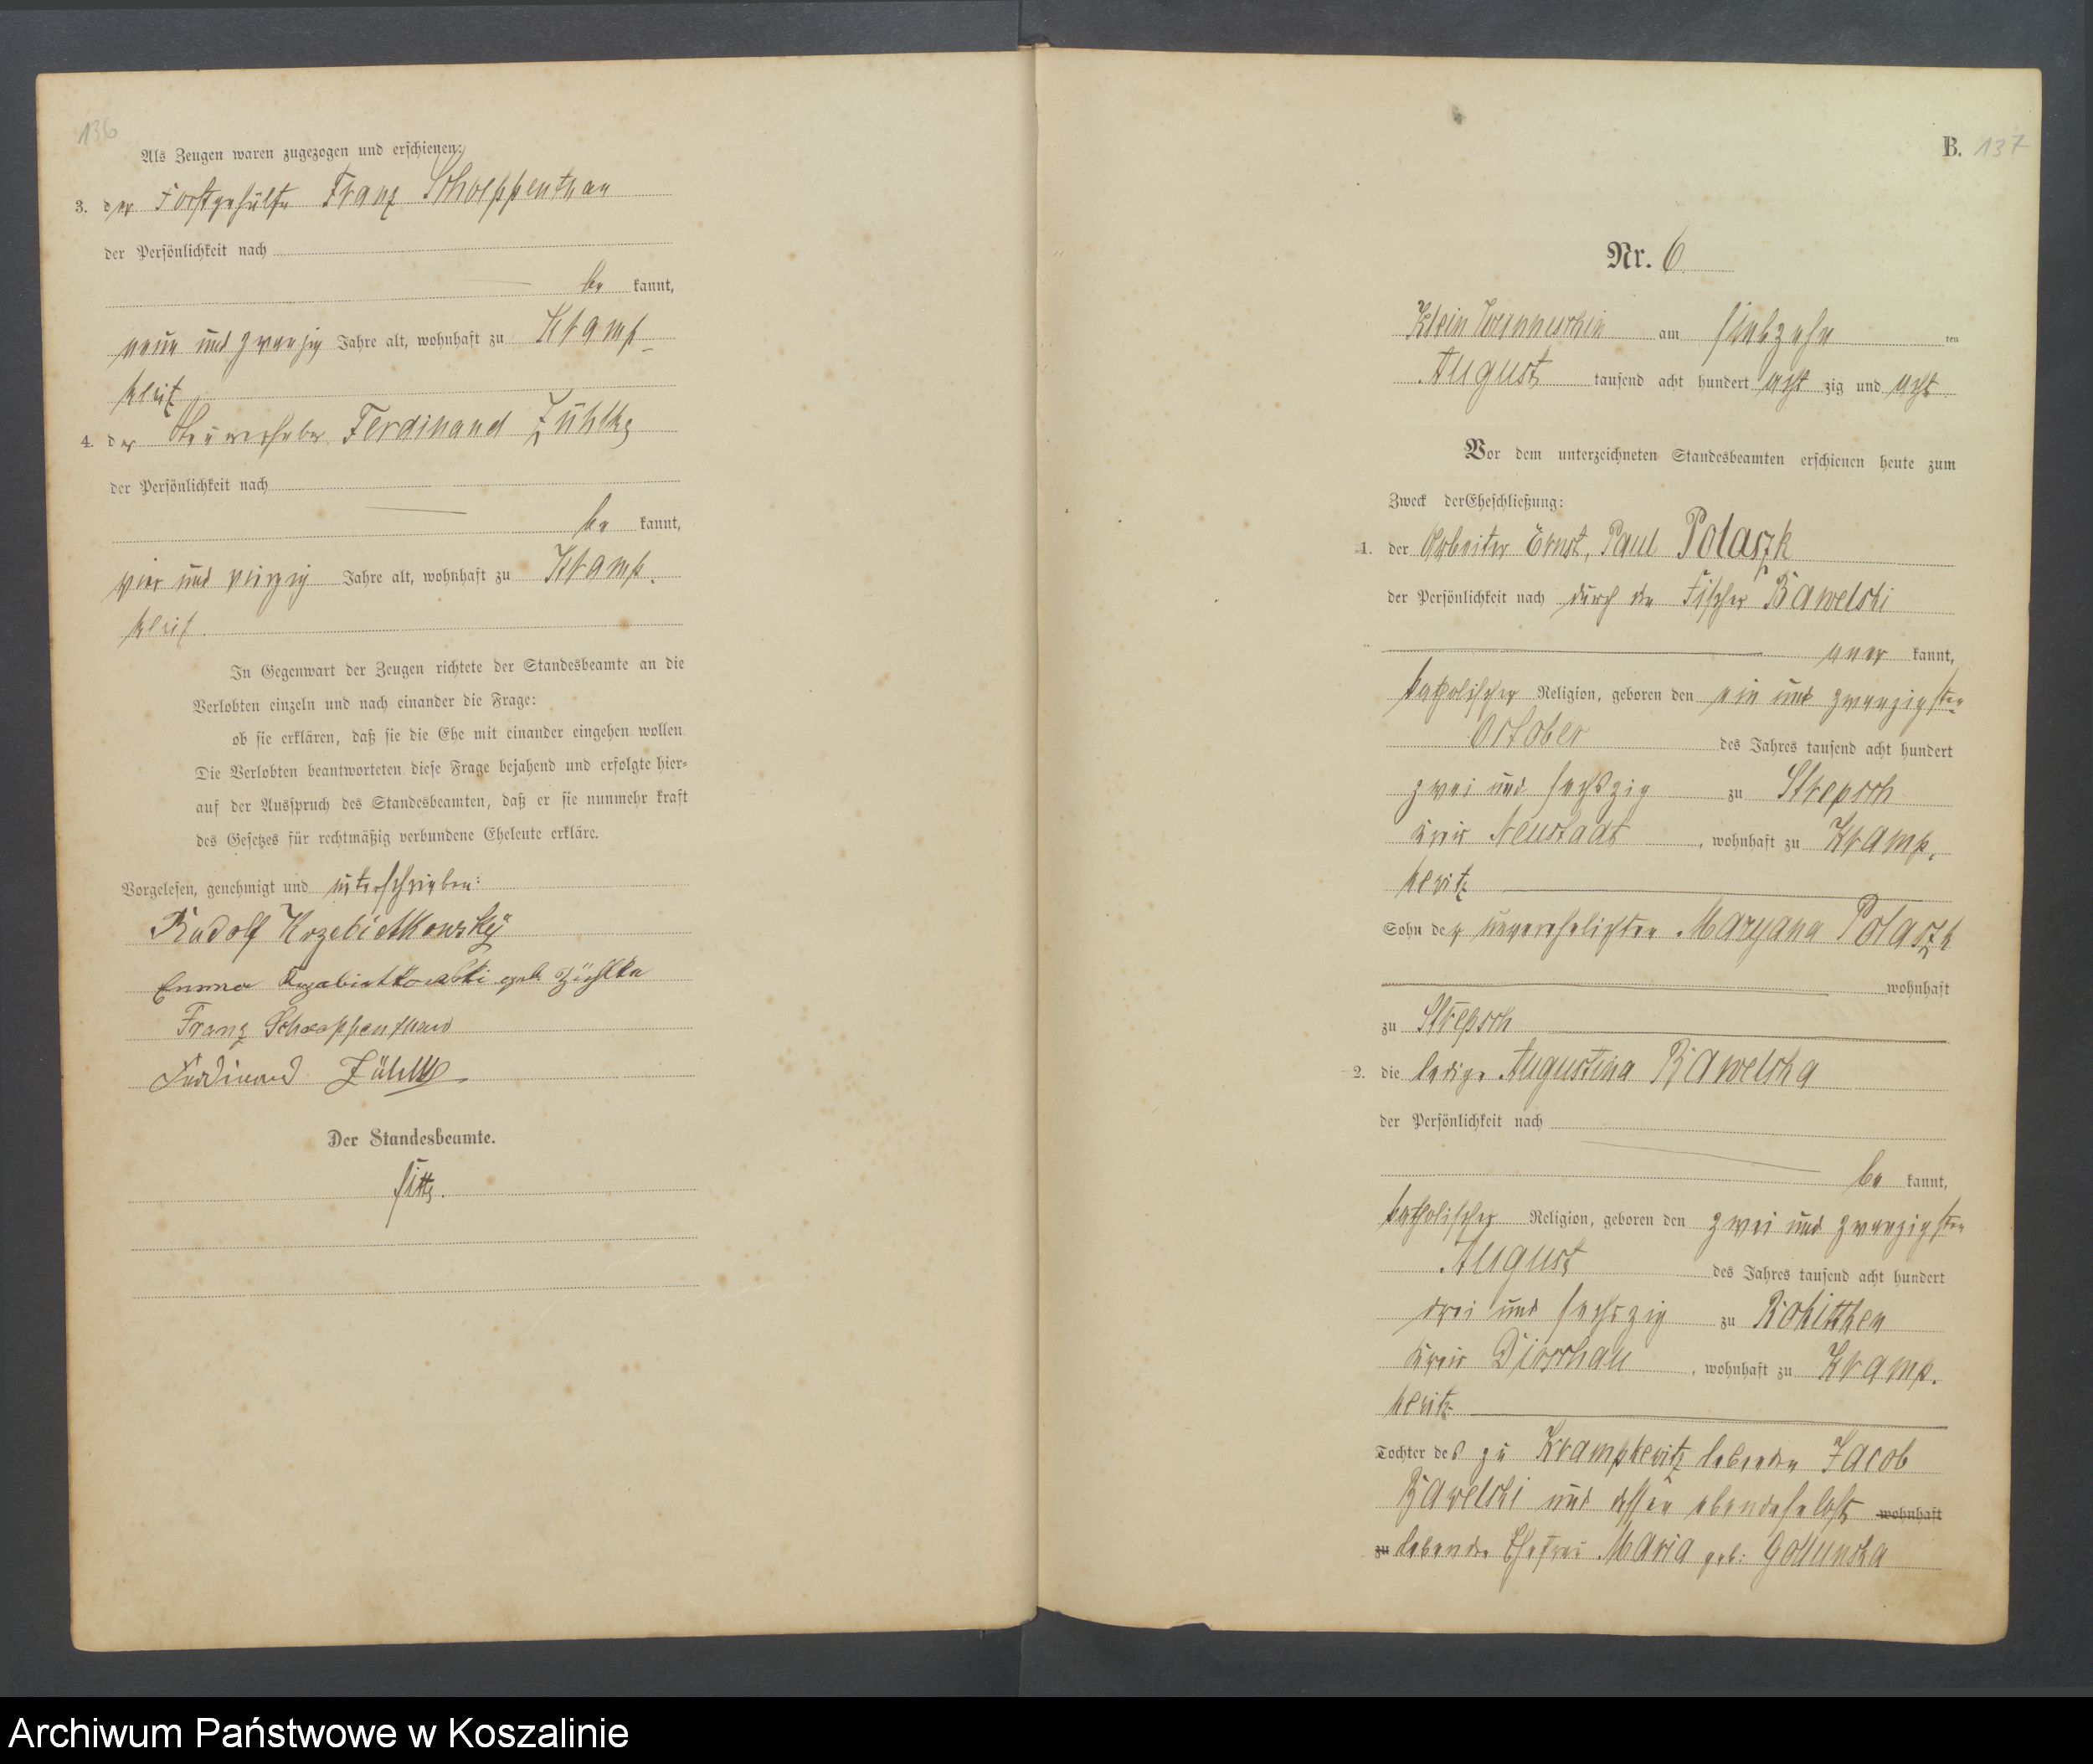 136
Als Zeugen waren zugezogen und erschienen:
3. der Forstgehülfe Franz Schoeppenthau
der Persönlichkeit nach
be kannt,
neun und zwanzig Jahre alt, wohnhaft zu Kramp-
kewitz
4. der Ferdinand Zühlke
der Persönlichkeit nach
be kannt,
vier und vierzig Jahre alt, wohnhaft zu Kramp-
kewitz.
In Gegenwart der Zeugen richtete der Standesbeamte an die
Verlobten einzeln und nach einander die Frage:
ob sie erklären, daß sie die Ehe mit einander eingehen wollen
Die Verlobten beantworteten diese Frage bejahend und erfolgte hier-
auf der Ausspruch des Standesbeamten, daß er sie nunmehr kraft
des Gesetzes für rechtmäßig verbundene Eheleute erkläre.
Vorgelesen, genehmigt und unterschrieben:
Rudolf Krzebietkowsky
Emma Krzebiatkowski geb Zühlke
Franz Schoeppenthau
Ferdinand Zühlke
Der Standesbeamte.
B. 137
Nr. 6
Klein am siebzehn ten
August tausend acht hundert acht zig und acht
Vor dem unterzeichneten Standesbeamten erschienen heute zum
Zweck der Eheschließung:
1. der Arbeiter Ernst, Paul Polaszk
der Persönlichkeit nach durch den Fischer Bawelski
aner kannt,
katholischer Religion, geboren den ein und zwanzigsten
October des Jahres tausend acht hundert
zwei und sechszig zu Strepsch
Kreis Neustadt, wohnhaft zu Kramp-
kewitz
Sohn der unverehelichten Maryana Polaszk
wohnhaft
zu Strepsch
2. die ledige Augustina Bawelska
der Persönlichkeit nach
be kannt,
katholischer Religion, geboren den zwei und zwanzigsten
August des Jahres tausend acht hundert
drei und sechszig zu Rokittken
Kreis Dirschau, wohnhaft zu Kramp-
kewitz
Tochter des zu Krampkewitz lebenden Jacob
Bawelski und dessen ebendaselbst wohnhaft
zu lebende Ehefrau Maria geb: Golunska
Archiwum Państwowe w Koszalinie